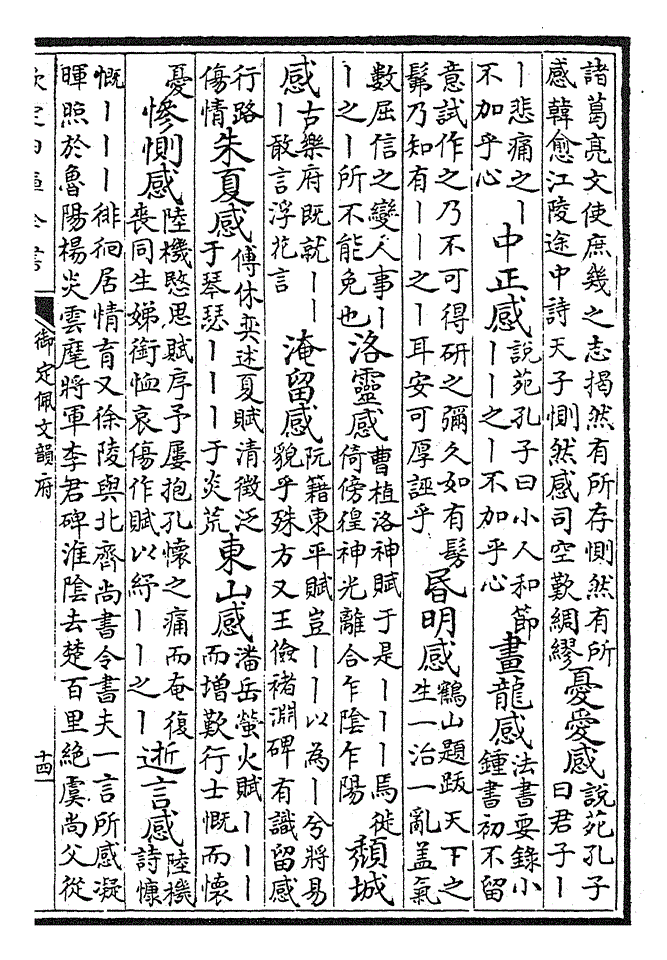 諸葛亮文使庶幾之志揭然有所存惻然有所
感韓愈江陵途中詩天子惻然感司空歎綢繆
憂愛感
說苑孔子
曰君子｜
｜悲痛之｜
不加乎心
中正感
說苑孔子曰小人和節
｜｜之｜不加乎心
畫龍感
法書要錄小
鍾書初不留
意試作之乃不可得研之彌久如有髣
髴乃知有｜｜之｜耳安可厚誣乎
昬明感
鶴山題跋天下之
生一治一亂蓋氣
數屈信之變人事｜
｜之｜所不能免也
洛靈感
曹植洛神賦于是｜｜｜焉徙
倚傍徨神光離合乍陰乍陽
頽城
感
古樂府既就｜｜
｜敢言浮花言
淹留感
阮籍東平賦豈｜｜以為｜兮將易
貌乎殊方又王儉褚淵碑有識留感
行路
傷情
朱夏感
傅休奕述夏賦清徵泛
于琴瑟｜｜｜于炎荒
東山感
潘岳螢火賦｜｜｜
而增歎行士慨而懷
憂
慘惻感
陸機愍思賦序予屢抱孔懷之痛而奄復
喪同生娣銜恤哀傷作賦以紓｜｜之｜
逝言感
陸機
詩慷
慨｜｜｜徘徊居情育又徐陵與北齊尚書令書夫一言所感凝
暉照於魯陽楊炎雲麾將軍李君碑淮陰去楚百里絕虞尚父從
欽定四庫全書
御定佩文韻府
十四